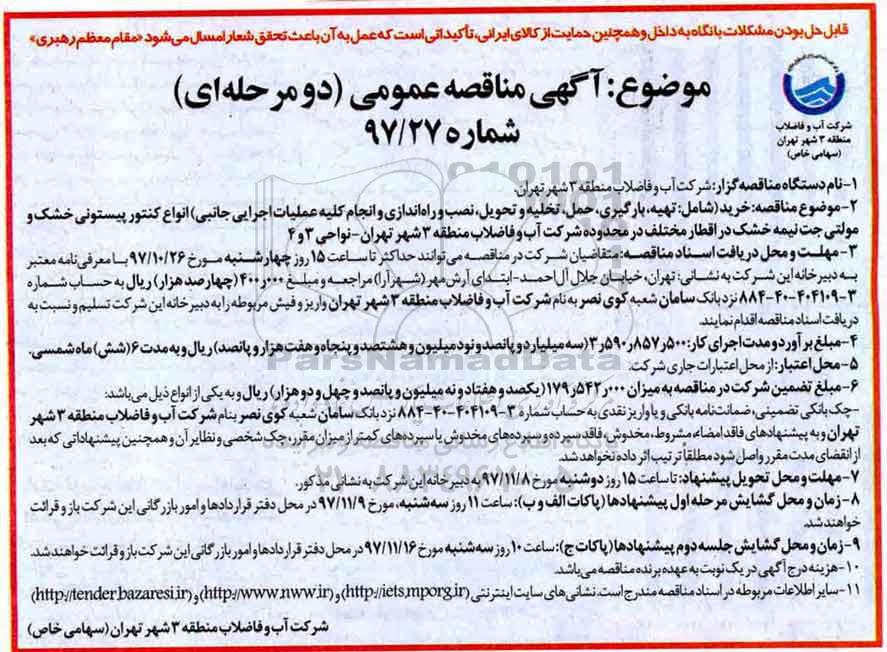 قابل حل بودن مشکلات با نگاه به داخل و همچنین حمایت از کالای ایرانی، تأکیداتی است که عمل به آن باعث تحقق شعار امسال می‌شود «مقام معظم رهبری»
موضوع: آگهی مناقصه عمومی (دو مرحله‌ای)
شماره ۹۷/۲۷
شرکت آب و فاضلاب
منطقه ۳ شهر تهران
(سهامی خاص)
۱- نام دستگاه مناقصه گزار: شرکت آب و فاضلاب منطقه ۳ شهر تهران.
۲- موضوع مناقصه: خرید (شامل: تهیه، بارگیری، حمل، تخلیه و تحویل، نصب و راه‌اندازی و انجام کلیه عملیات اجرایی جانبی) انواع کنتور پیستونی خشک و
مولتی جت نیمه خشک در اقطار مختلف در محدوده شرکت آب و فاضلاب منطقه ۳ شهر تهران - نواحی ۳ و ۴
۳- مهلت و محل دریافت اسناد مناقصه: متقاضیان شرکت در مناقصه می‌توانند حداکثر تا ساعت ۱۵ روز چهارشنبه مورخ ۹۷/۱۰/۲۶ با معرفی نامه معتبر
به دبیرخانه این شرکت به نشانی: تهران، خیابان جلال آل احمد - ابتدای آرش مهر (شهرآرا) مراجعه و مبلغ ۴۰۰٫۰۰۰ (چهارصد هزار) ریال به حساب شماره
۳-۴۰۴۱۰۹-۴۰-۸۸۴ نزد بانک سامان شعبه کوی نصر به نام شرکت آب و فاضلاب منطقه ۳ شهر تهران واریز و فیش مربوطه را به دبیرخانه این شرکت تسلیم و نسبت به
دریافت اسناد مناقصه اقدام نمایند.
۴- مبلغ برآورد و مدت اجرای کار: ۳٫۵۹۰٫۸۵۷٫۵۰۰ (سه میلیارد و پانصد و نود میلیون و هشتصد و پنجاه و هفت هزار و پانصد) ریال و به مدت ۶ (شش) ماه شمسی.
۵- محل اعتبار: از محل اعتبارات جاری شرکت.
۶- مبلغ تضمین شرکت در مناقصه به میزان ۱۷۹٫۵۴۲٫۰۰۰ (یکصد و هفتاد و نه میلیون و پانصد و چهل و دو هزار) ریال و به یکی از انواع ذیل می‌باشد:
-چک بانکی تضمینی، ضمانت نامه بانکی و یا واریز نقدی به حساب شماره ۳-۴۰۴۱۰۹-۴۰-۸۸۴ نزد بانک سامان شعبه کوی نصر بنام شرکت آب و فاضلاب منطقه ۳ شهر
تهران و به پیشنهادهای فاقد امضاء، مشروط، مخدوش، فاقد سپرده و سپرده‌های مخدوش یا سپرده‌های کمتر از میزان مقرر، چک شخصی و نظایر آن و همچنین پیشنهاداتی که بعد
از انقضای مدت مقرر واصل شود مطلقا ترتیب اثر داده نخواهد شد.
۷- مهلت و محل تحویل پیشنهاد: تا ساعت ۱۵ روز دوشنبه مورخ ۹۷/۱۱/۸ به دبیرخانه این شرکت به نشانی مذکور.
۸- زمان و محل گشایش مرحله اول پیشنهادها (پاکات الف و ب): ساعت ۱۱ روز سه‌شنبه، مورخ ۹۷/۱۱/۹ در محل دفتر قراردادها و امور بازرگانی این شرکت باز و قرائت
خواهند شد.
۹- زمان و محل گشایش جلسه دوم پیشنهادها (پاکات ج): ساعت ۱۰ روز سه شنبه مورخ ۹۷/۱۱/۱۶ در محل دفتر قراردادها و امور بازرگانی این شرکت باز و قرائت خواهند شد.
۱۰- هزینه درج آگهی در یک نوبت به عهده برنده مناقصه می‌باشد.
۱۱- سایر اطلاعات مربوطه در اسناد مناقصه مندرج است. نشانی‌های سایت اینترنتی (http://iets.mporg.ir) و (http://www.nww.ir) و (http://tender.bazaresi.ir)
شرکت آب و فاضلاب منطقه ۳ شهر تهران (سهامی خاص)
ParsNamadData